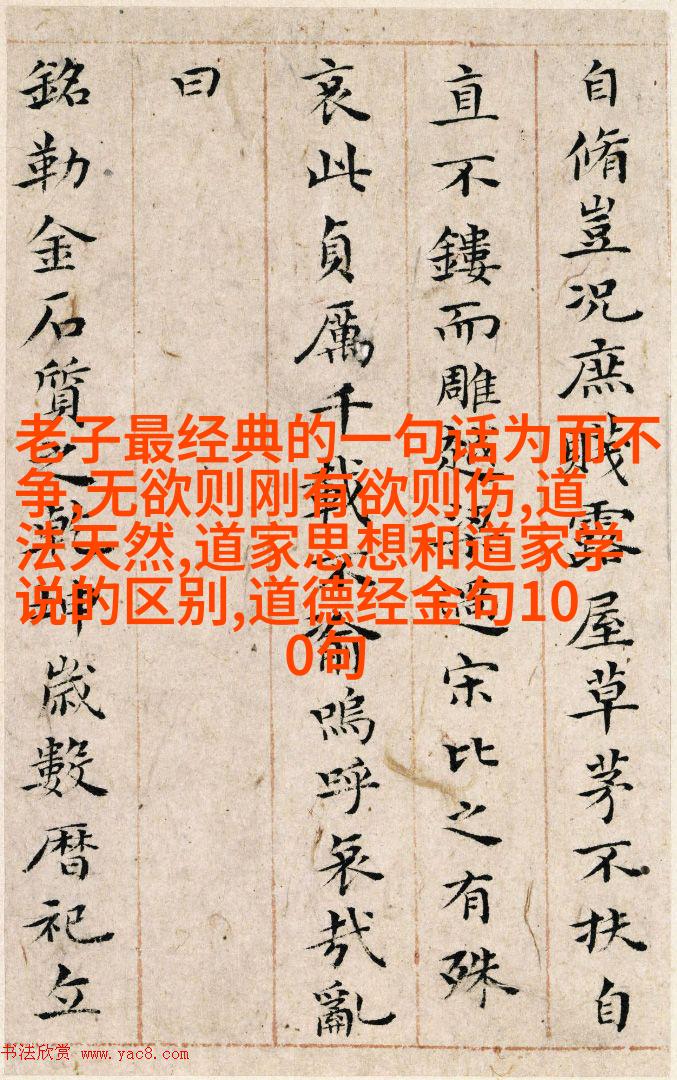 自脩豈況庶賤露屋草茅不扶自
直不鏤而雕宋比之有殊
哀此貞厲千載嗚呼哀哉亂
曰
銘勒金石質之乾坤歲數曆祀立
老子最经典的一句话为而不
争,无欲则刚有欲则伤,道
法天然,道家思想和道家学
说的区别,道德经金句10
0句
书法欣赏 www.yac8.com